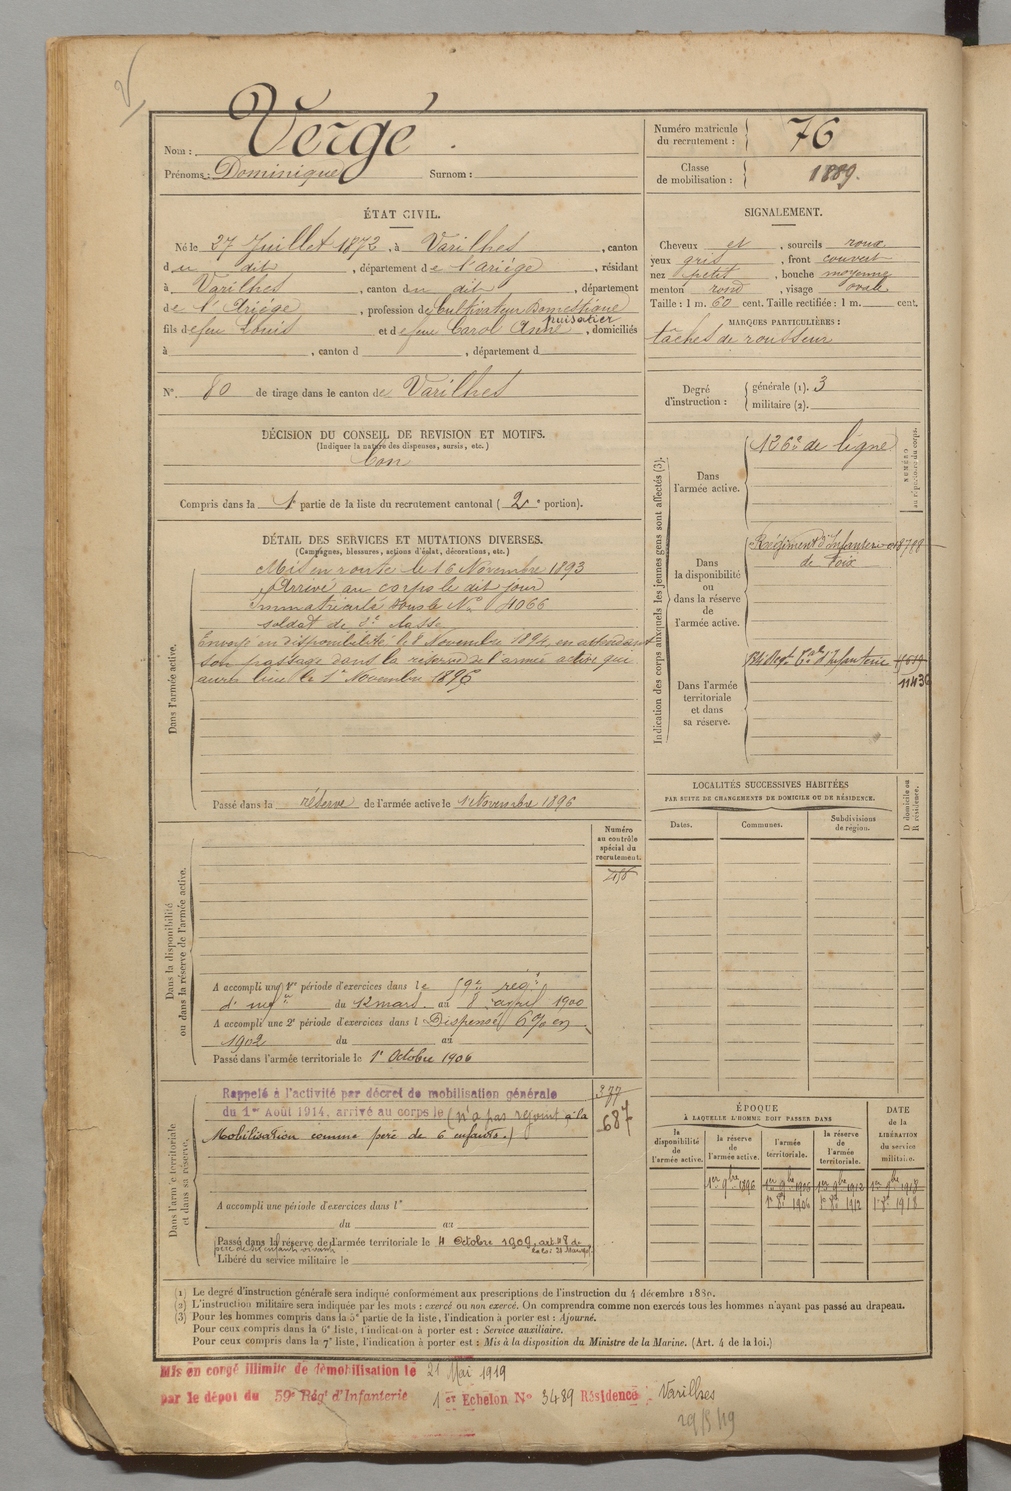 Nom : Vergé
Prénoms : Dominique Surnom :
Numéro matricule du recrutement : 76
Classe de mobilisation : 1889.
ÉTAT CIVIL.
Né le 27 Juillet 1872, à Varilhes, canton
du dit, département de l'ariège, résidant
à Varilhes, canton du dit, département
de l'Ariége, profession de Cultivateur Domestique
puisatier
fils de feu Louis et de feue Carol Anne, domiciliés
à , canton d , département d
N° 80 de tirage dans le canton de Varilhes
DÉCISION DU CONSEIL DE REVISION ET MOTIFS.
(Indiquer la nature des dispenses, sursis, etc.)
bon
Compris dans la 1e partie de la liste du recrutement cantonal (2e portion).
SIGNALEMENT.
Cheveux et, sourcils roux
yeux gris, front couvert
nez petit, bouche moyenne
menton rond, visage ovale
Taille : 1 m. 60 cent. Taille rectifiée : 1 m. cent.
MARQUES PARTICULIÈRES :
tâches de rousseur
Degré d'instruction :
générale (1). 3
militaire (2).
DÉTAIL DES SERVICES ET MUTATIONS DIVERSES.
(Campagnes, blessures, actions d'éclat, décorations, etc.)
Dans l'armée active.
Mis en route le 16 Novembre 1893
Arrivé au corps le dit jour
Immatriculé sous le N° 4066
soldat de 2e classe
Envoyé en disponibilité le 8 Novembre 1894, en attendant
son passage dans la réserve de l'armée active qui
aura lieu le 1er Novembre 1896
Passé dans la réserve de l'armée active le 1 Novembre 1896
Indication des corps auxquels les jeunes gens sont affectés (3).
NUMÉRO au répertoire du corps.
Dans l'armée active.
126e de ligne
Dans la disponibilité ou dans la réserve de l'armée active.
Régiment d'Infanterie
de Foix
Dans l'armée territoriale et dans sa réserve.
Regt Terr d'Infanterie
1143
LOCALITÉS SUCCESSIVES HABITÉES
PAR SUITE DE CHANGEMENTS DE DOMICILE OU DE RÉSIDENCE.
Dates. Communes. Subdivisions de région. D domicile ou R résidence.
Dans la disponibilité ou dans la réserve de l'armée active.
Numéro au contrôle spécial du recrutement.
A accompli une 1re période d'exercices dans le 59e rég.t
d'inf.ie du 12 mars au 8 avril 1900
A accompli une 2e période d'exercices dans l Dispensé 6% en
1902 du au
Passé dans l'armée territoriale le 1er Octobre 1906
Dans l'armée territoriale et dans sa réserve.
Rappelé à l'activité par décret de mobilisation générale
du 1er Août 1914, arrivé au corps le (n'a pas rejoint à la
Mobilisation comme père de 6 enfants.)
377
687
A accompli une période d'exercices dans l'
du au
Passé dans la réserve de l'armée territoriale le 4 Octobre 1909, art 48 de
père de six enfants vivants
Libéré du service militaire le
ÉPOQUE
À LAQUELLE L'HOMME DOIT PASSER DANS
DATE de la LIBÉRATION du service militaire.
la disponibilité de l'armée active. la réserve de l'armée active. l'armée territoriale. la réserve de l'armée territoriale.
1er 9bre 1896 1er 9bre 1906 1er 9bre 1912 1er 9bre 1918
1er 8bre 1906 1er 8bre 1912 1er 8bre 1918
(1) Le degré d'instruction générale sera indiqué conformément aux prescriptions de l'instruction du 4 décembre 1889.
(2) L'instruction militaire sera indiquée par les mots : exercé ou non exercé. On comprendra comme non exercés tous les hommes n'ayant pas passé au drapeau.
(3) Pour les hommes compris dans la 5e partie de la liste, l'indication à porter est : Ajourné.
Pour ceux compris dans la 6e liste, l'indication à porter est : Service auxiliaire.
Pour ceux compris dans la 7e liste, l'indication à porter est : Mis à la disposition du Ministre de la Marine. (Art. 4 de la loi.)
Mis en congé illimité de démobilisation le 21 Mai 1919
par le dépôt du 59e Régt d'Infanterie 1er Echelon N° 3489 Résidence : Varilhes
29/5/19